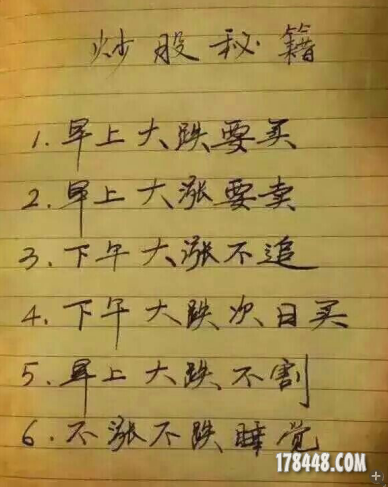 炒股秘籍
1.早上大跌要买
2.早上大涨要卖
3.下午大涨不追
4.下午大跌次日买
5.早上大跌不割
6.不涨不跌睡觉
178448.COM